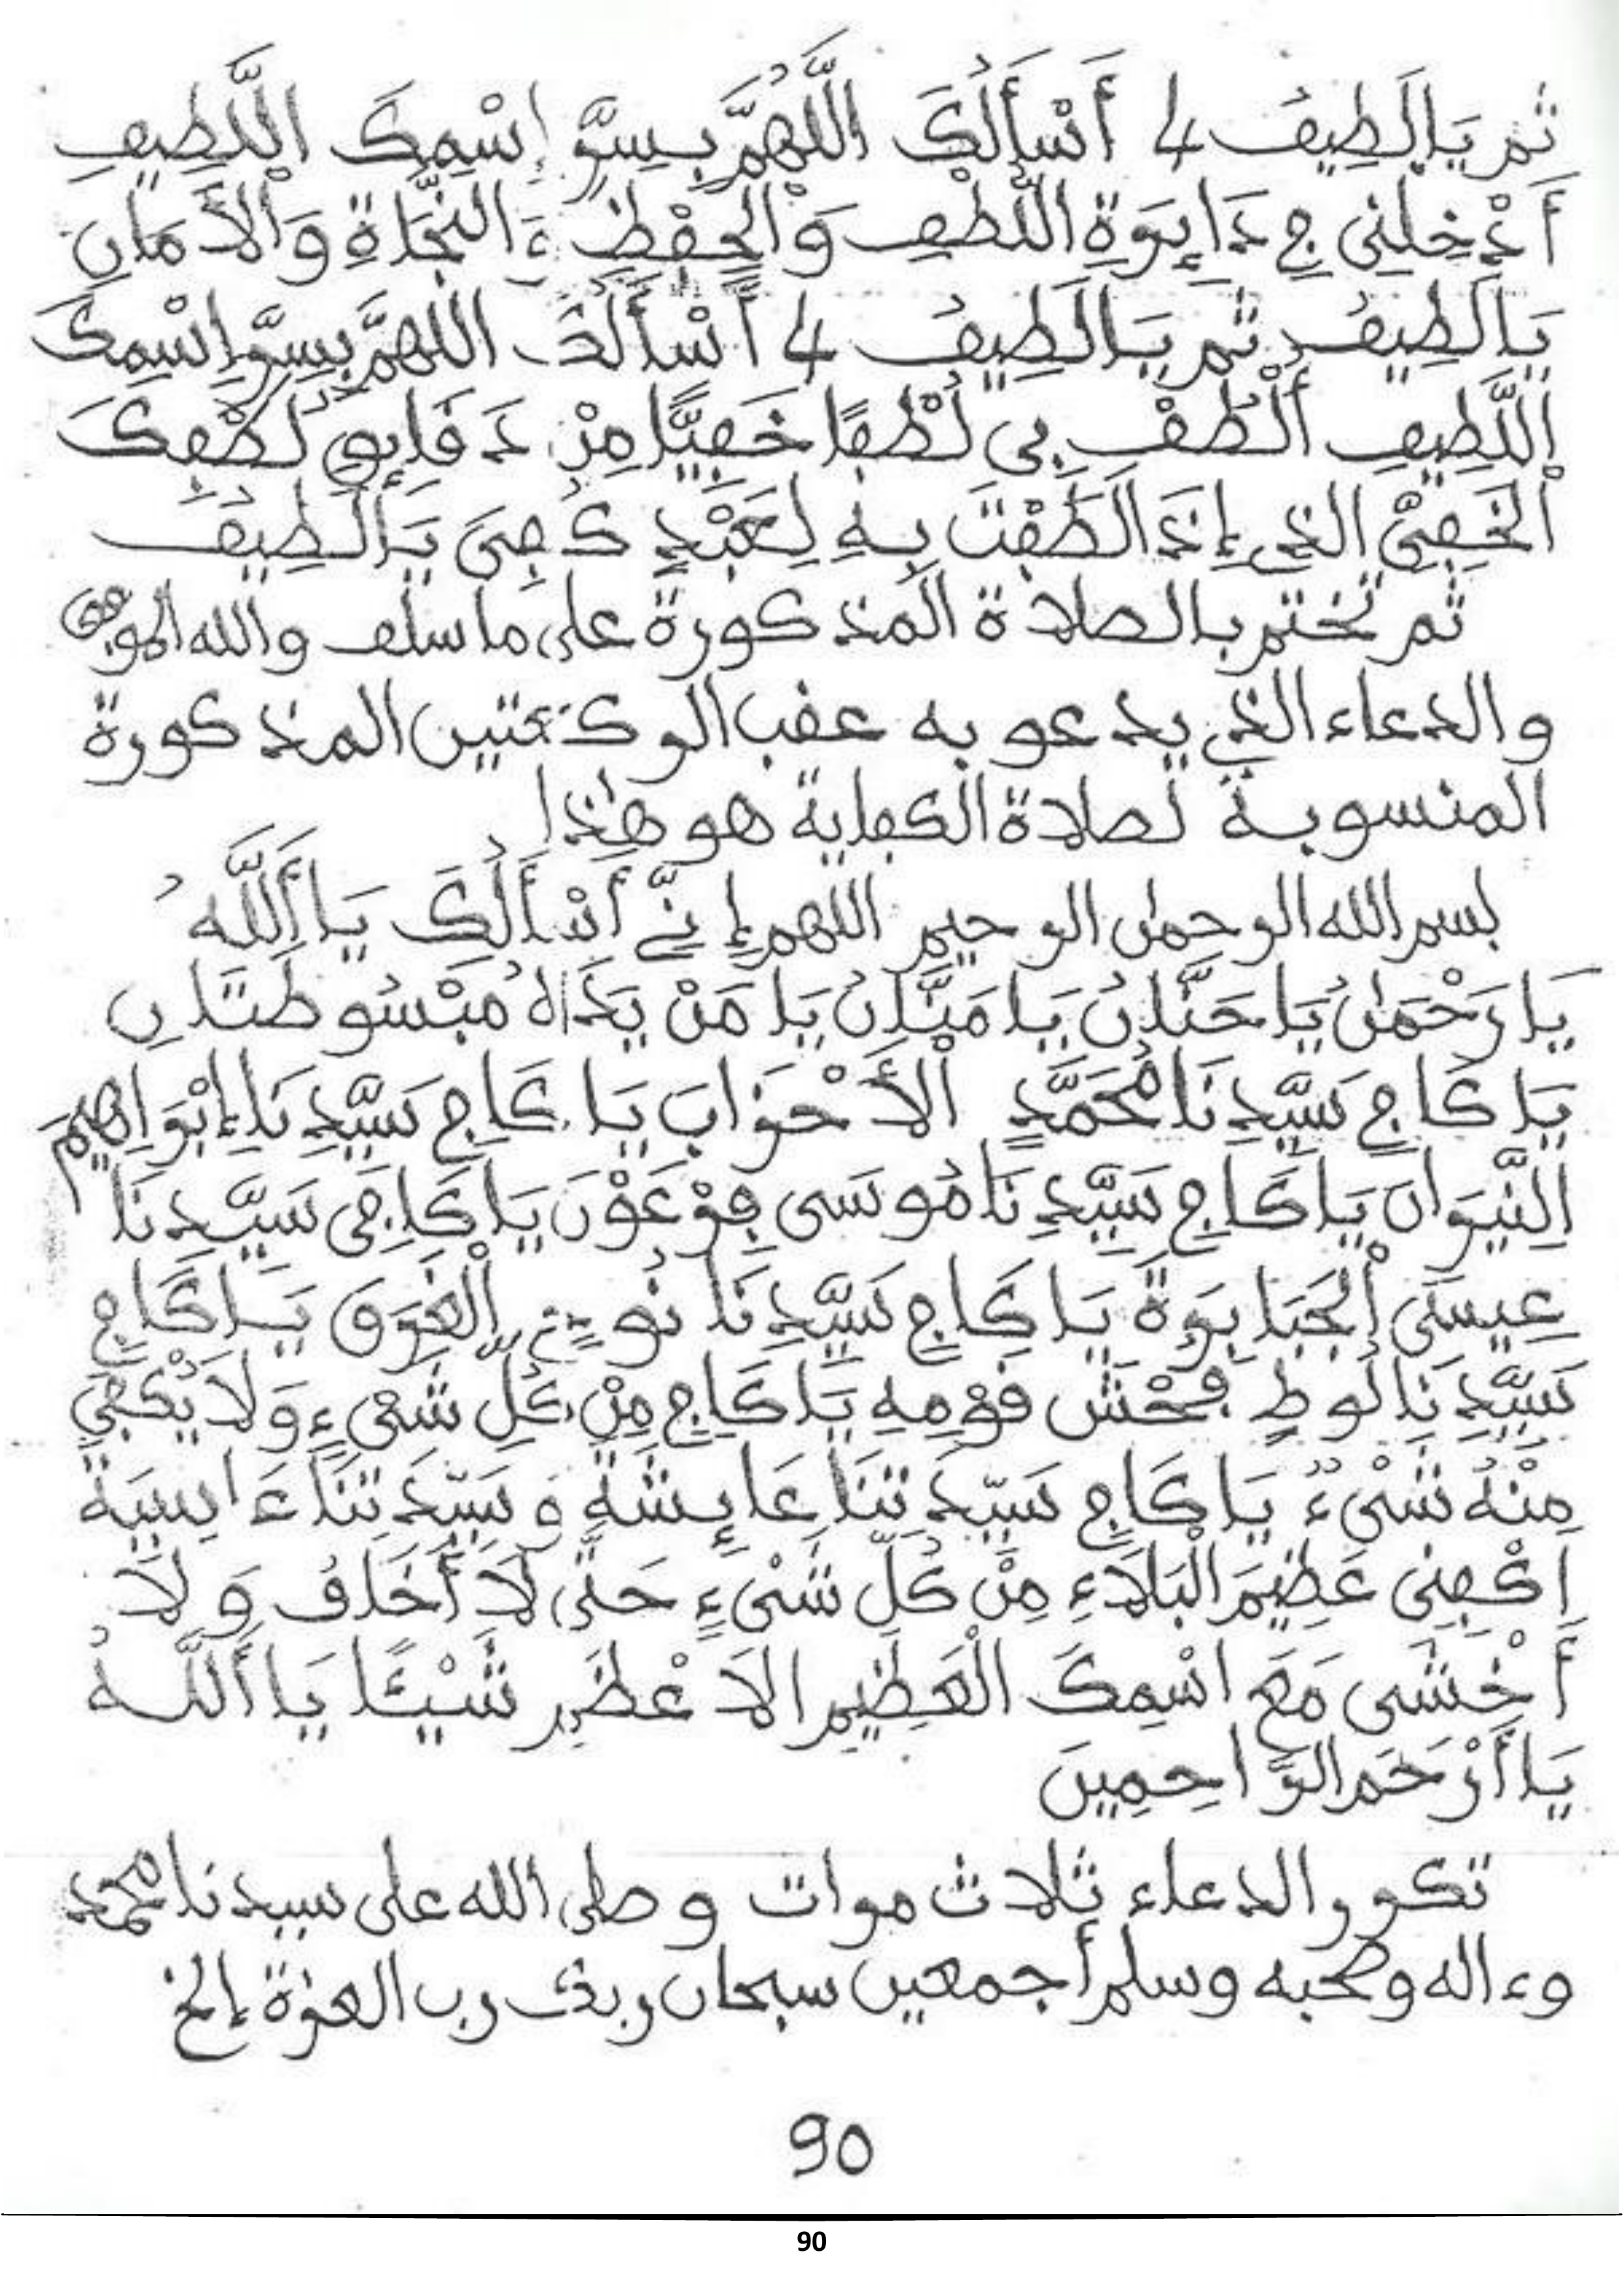 ثم يَا لَطِيفُ 4 أَسْأَلُكَ اللَّهُمَّ بِسِرِّ إِسْمِكَ اللَّطِيفِ
أَدْخِلْنِي فِي دَائِرَةِ اللُّطْفِ وَالْحِفْظِ وَالنَّجَاةِ وَالأَمَانِ
يَا لَطِيفُ ثم يَا لَطِيفُ 4 أَسْأَلُكَ اللهمَّ بِسِرِّ اِسْمِكَ
اللَّطِيفِ أُلْطُفْ بِي لُطْفًا خَفِيًّا مِنْ دَقَائِقِ لُطْفِكَ
الْخَفِيِّ الذِي إِذَا لَطَفْتَ بِهِ لِعَبْدٍ كُفِيَ يَا لَطِيفُ
ثم تختم بالصلاة المذكورة على ما سلف والله الموفق
والدعاء الذي يدعو به عقب الركعتين المذكورة
المنسوبة لصلاة الكفاية هو هذا
بسم الله الرحمن الرحيم اللهم إِنِّي أَسْأَلُكَ يَا أَللَّهُ
يَا رَحْمَنُ يَا حَنَّانُ يَا مَنَّانُ يَا مَنْ يَدَاهُ مَبْسُوطَتَانِ
يَا كَافِي سَيِّدِنَا مُحَمَّدٍ الأَحْزَابَ يَا كَافِي سَيِّدِنَا إِبْرَاهِيمَ
اَلنِّيرَانَ يَا كَافِي سَيِّدِنَا مُوسَى فِرْعَوْنَ يَا كَافِي سَيِّدِنَا
عِيسَى الْجَبَابِرَةَ يَا كَافِي سَيِّدِنَا نُوحٍ الْغَرَقَ يَا كَافِي
سَيِّدِنَا لُوطٍ فُحْشَ قَوْمِهِ يَا كَافِي مِنْ كُلِّ شَيْءٍ وَلَا يُكْفَى
مِنْهُ شَيْءٌ يَا كَافِي سَيِّدَتِنَا عَائِشَةَ وَسَيِّدَتِنَا ءَاسِيَةَ
اِكْفِنِي عَظِيمَ الْبَلَاءِ مِنْ كُلِّ شَيْءٍ حَتَّى لَا أَخَافُ وَلَا
أَخْشَى مَعَ اسْمِكَ الْعَظِيمِ الاَعْظَمِ شَيْئًا يَا أَللَّهُ
يَا أَرْحَمَ الرَّاحِمِينَ
تكرر الدعاء ثلاث مرات وصلى الله على سيدنا محمد
وءاله وصحبه وسلم أجمعين سبحان ربك رب العزة إلخ
90
90